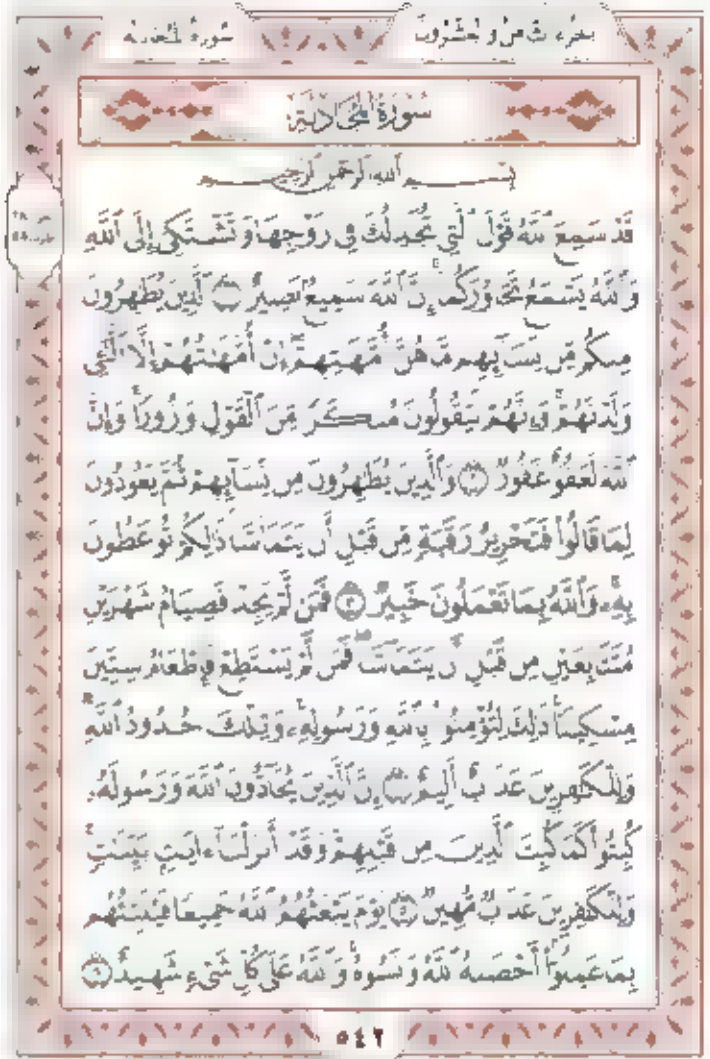 الجزء الثامن والعشرون سورة المجادلة
سُورَةُ المُجَادلَةِ
بِسْمِ ٱللَّهِ ٱلرَّحْمَٰنِ ٱلرَّحِيمِ
قَدْ سَمِعَ ٱللَّهُ قَوْلَ ٱلَّتِي تُجَٰدِلُكَ فِي زَوْجِهَا وَتَشْتَكِيٓ إِلَى ٱللَّهِ
وَٱللَّهُ يَسْمَعُ تَحَاوُرَكُمَآ إِنَّ ٱللَّهَ سَمِيعُۢ بَصِيرٌ ١ ٱلَّذِينَ يُظَٰهِرُونَ
مِنكُم مِّن نِّسَآئِهِم مَّا هُنَّ أُمَّهَٰتِهِمْ إِنْ أُمَّهَٰتُهُمْ إِلَّا ٱلَّٰٓـِٔي
وَلَدْنَهُمْ وَإِنَّهُمْ لَيَقُولُونَ مُنكَرًا مِّنَ ٱلْقَوْلِ وَزُورًا وَإِنَّ
ٱللَّهَ لَعَفُوٌّ غَفُورٌ ٢ وَٱلَّذِينَ يُظَٰهِرُونَ مِن نِّسَآئِهِمْ ثُمَّ يَعُودُونَ
لِمَا قَالُوا۟ فَتَحْرِيرُ رَقَبَةٍ مِّن قَبْلِ أَن يَتَمَآسَّا ذَٰلِكُمْ تُوعَظُونَ
بِهِۦ وَٱللَّهُ بِمَا تَعْمَلُونَ خَبِيرٌ ٣ فَمَن لَّمْ يَجِدْ فَصِيَامُ شَهْرَيْنِ
مُتَتَابِعَيْنِ مِن قَبْلِ أَن يَتَمَآسَّا فَمَن لَّمْ يَسْتَطِعْ فَإِطْعَامُ سِتِّينَ
مِسْكِينًا ذَٰلِكَ لِتُؤْمِنُوا۟ بِٱللَّهِ وَرَسُولِهِۦ وَتِلْكَ حُدُودُ ٱللَّهِ
وَلِلْكَٰفِرِينَ عَذَابٌ أَلِيمٌ ٤ إِنَّ ٱلَّذِينَ يُحَآدُّونَ ٱللَّهَ وَرَسُولَهُۥ
كُبِتُوا۟ كَمَا كُبِتَ ٱلَّذِينَ مِن قَبْلِهِمْ وَقَدْ أَنزَلْنَآ ءَايَٰتٍۭ بَيِّنَٰتٍ
وَلِلْكَٰفِرِينَ عَذَابٌ مُّهِينٌ ٥ يَوْمَ يَبْعَثُهُمُ ٱللَّهُ جَمِيعًا فَيُنَبِّئُهُم
بِمَا عَمِلُوٓا۟ أَحْصَىٰهُ ٱللَّهُ وَنَسُوهُ وَٱللَّهُ عَلَىٰ كُلِّ شَيْءٍ شَهِيدٌ ٦
٥٤٢